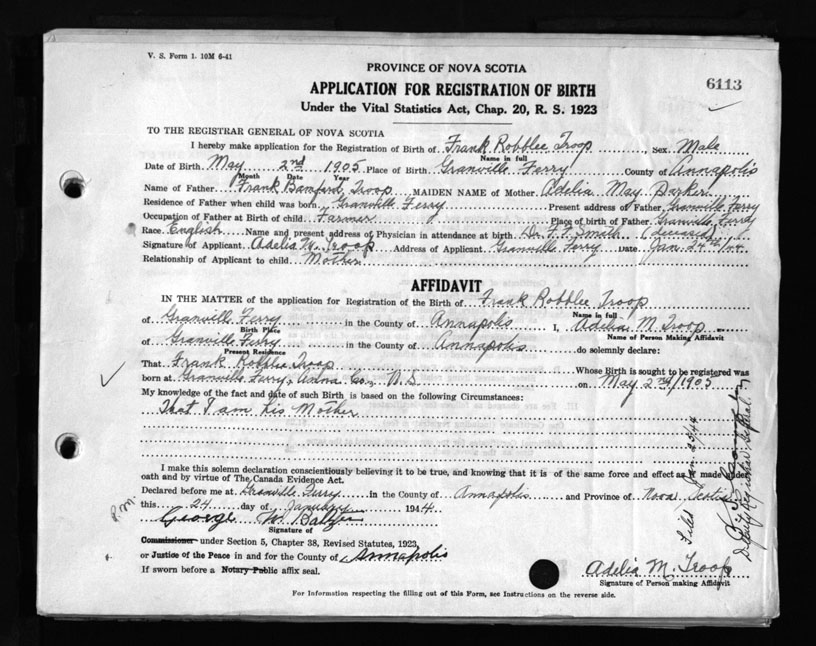 V. S. Form 1. 10M 6-41
PROVINCE OF NOVA SCOTIA
6113
APPLICATION FOR REGISTRATION OF BIRTH
Under the Vital Statistics Act, Chap. 20, R. S. 1923
TO THE REGISTRAR GENERAL OF NOVA SCOTIA
I hereby make application for the Registration of Birth of Frank Robblee Troop, Sex Male
Name in full
Date of Birth May 2nd 1905 Place of Birth Granville Ferry County of Annapolis
Month Date Year
Name of Father Frank Bamford Troop MAIDEN NAME of Mother Adelia May Parker
Residence of Father when child was born Granville Ferry Present address of Father Granville Ferry
Occupation of Father at Birth of child Farmer Place of birth of Father Granville Ferry
Race English Name and present address of Physician in attendance at birth Dr. F. F. Smith (deceased)
Signature of Applicant Adelia M. Troop Address of Applicant Granville Ferry Date Jan. 24th/44
Relationship of Applicant to child Mother
AFFIDAVIT
IN THE MATTER of the application for Registration of the Birth of Frank Robblee Troop
Name in full
of Granville Ferry in the County of Annapolis I, Adelia M. Troop
Birth Place Name of Person Making Affidavit
of Granville Ferry in the County of Annapolis do solemnly declare:
Present Residence
That Frank Robblee Troop Whose Birth is sought to be registered was
born at Granville Ferry, Anna Co., N.S. on May 2nd/1905
My knowledge of the fact and date of such Birth is based on the following Circumstances:
That I am his Mother
I make this solemn declaration conscientiously believing it to be true, and knowing that it is of the same force and effect as if made under
oath and by virtue of The Canada Evidence Act.
Declared before me at Granville Ferry in the County of Annapolis and Province of Nova Scotia
this 24 day of January 1944
P.M.
George W. Balzer
Signature of
Commissioner under Section 5, Chapter 38, Revised Statutes, 1923,
or Justice of the Peace in and for the County of Annapolis
If sworn before a Notary Public affix seal.
Adelia M. Troop
Signature of Person making Affidavit
For Information respecting the filling out of this Form, see Instructions on the reverse side.
Filed Jan 25/44
Deputy Registrar General